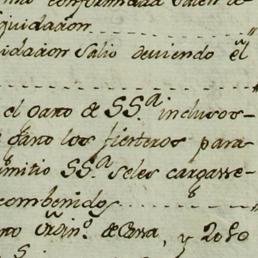 conformidad salen de
quidaron
uidaron Salio deviendo el
el Garo & SS.ª inclusos-
garo los fiesteros para
mitio SS.ª seles cargasse-
combenidos
Ordin.º de Cera, y 2050